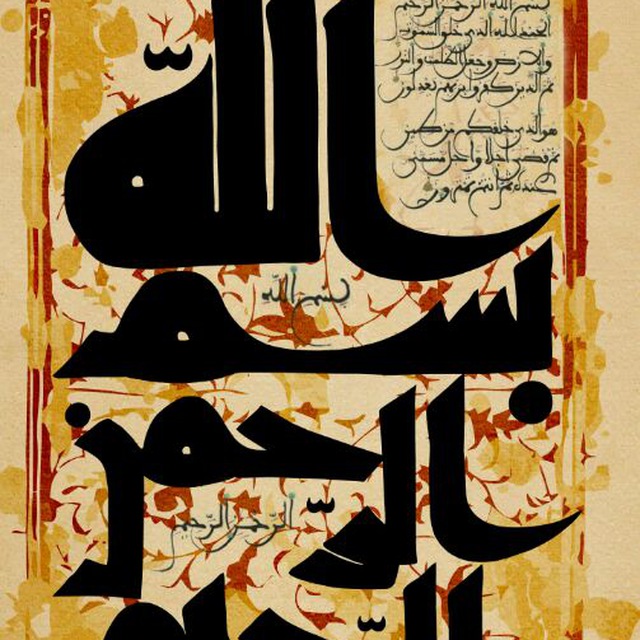 بسم الله الرحمن الرحيم
الحمد لله الذي خلق السموت
والارض وجعل الظلمت والنور
ثم الذين كفروا بربهم يعدلون
هو الذي خلقكم من طين
ثم قضى اجلا واجل مسمى
عنده ثم انتم تمترون
الله
بسم الله
بسم
الرحمن
الرحمن الرحيم